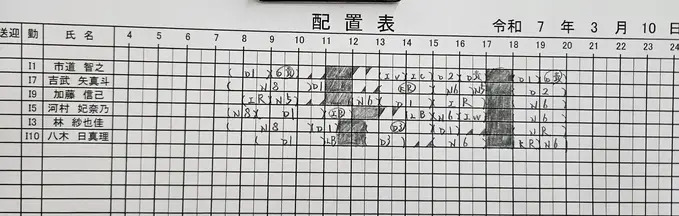 配置表 令和 7 年 3 月 10 日
送迎 勤 氏名 7 8 9 10 11 12 13 14 15 16 17 18 19 20
I1 市道 智之 D1 6 D2
I7 吉武 矢真斗 N8 D1 N6 N5 D2
I9 加藤 信己 IR N5 N6 D1 IR N6
I5 河村 妃奈乃 N8 D1 LB N6 IW N6
I3 林 紗也佳 N8 D1 D3 D1 NR
I10 八木 日真理 D1 LB D3 N6 KR N6